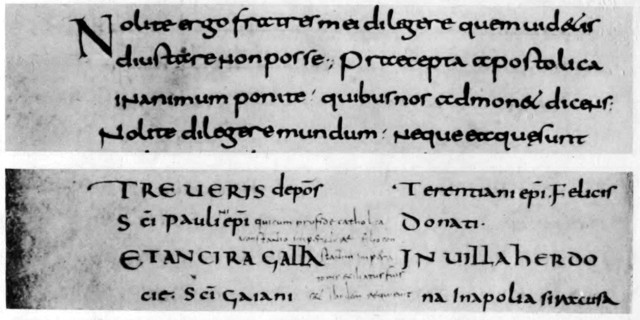 Nolite ergo fratres mei diligere quem uidetis
diu stare non posse:, Praecepta apostolica
in animum ponite: quibus nos admonet dicens:
Nolite diligere mundum: neque ea quę sunt
TREUERIS depōs Terentiani ep̄i. Felicis
S c̄i Pauli ep̄i qui cum pro fide catholica Donati.
ET ANCIRA Gallia IN uilla herdo
cie. S c̄i GAIANI na In apolia siracusa